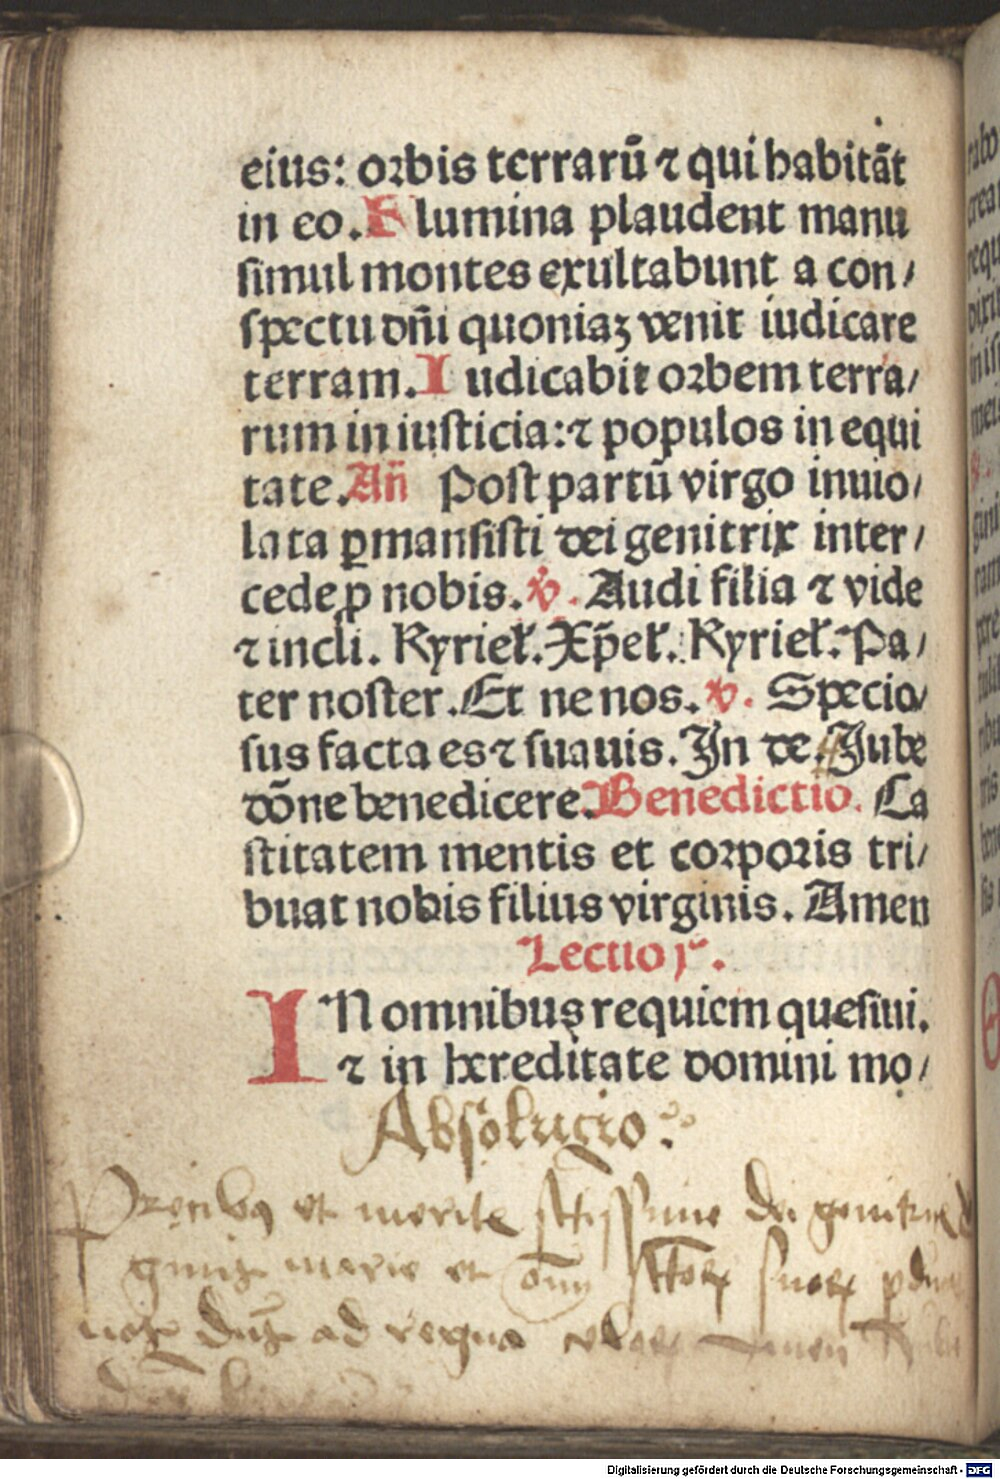 eius: orbis terrarū ⁊ qui habitāt
in eo. Flumina plaudent manu
simul montes exultabunt a con/
spectu dñi quoniaꝫ venit iudicare
terram. Iudicabit orbem terra/
rum in iusticia: ⁊ populos in equi
tate. Añ Post partū virgo inuio/
lata ꝑmansisti dei genitrix inter/
cede ꝓ nobis. ℣. Audi filia ⁊ vide
⁊ incli. Kyrieł. Xp̄eł. Kyrieł. Pa/
ter noster. Et ne nos. ℣. Specio/
sus facta es ⁊ suauis. In de. Iube
dōne benedicere. Benedictio. Ca
stitatem mentis et corporis tri/
buat nobis filius virginis. Amen
Lectio j.
IN omnibus requiem quesiui.
⁊ in hereditate domini mo/
Absolucio
Precibꝰ et meritꝭ sctissime dei genitricꝭ
ginis marie et oīm sctoꝝ suoꝝ ꝑducat
nos dns ad regna celoꝝ Amen
Digitalisierung gefördert durch die Deutsche Forschungsgemeinschaft - DFG